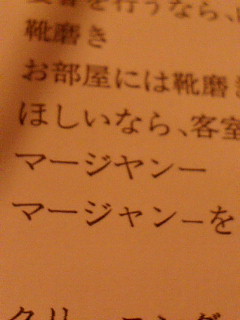 宴会を行うなら、
靴磨き
お部屋には靴磨き
ほしいなら、客室
マージヤンー
マージャンーを
クリーニング